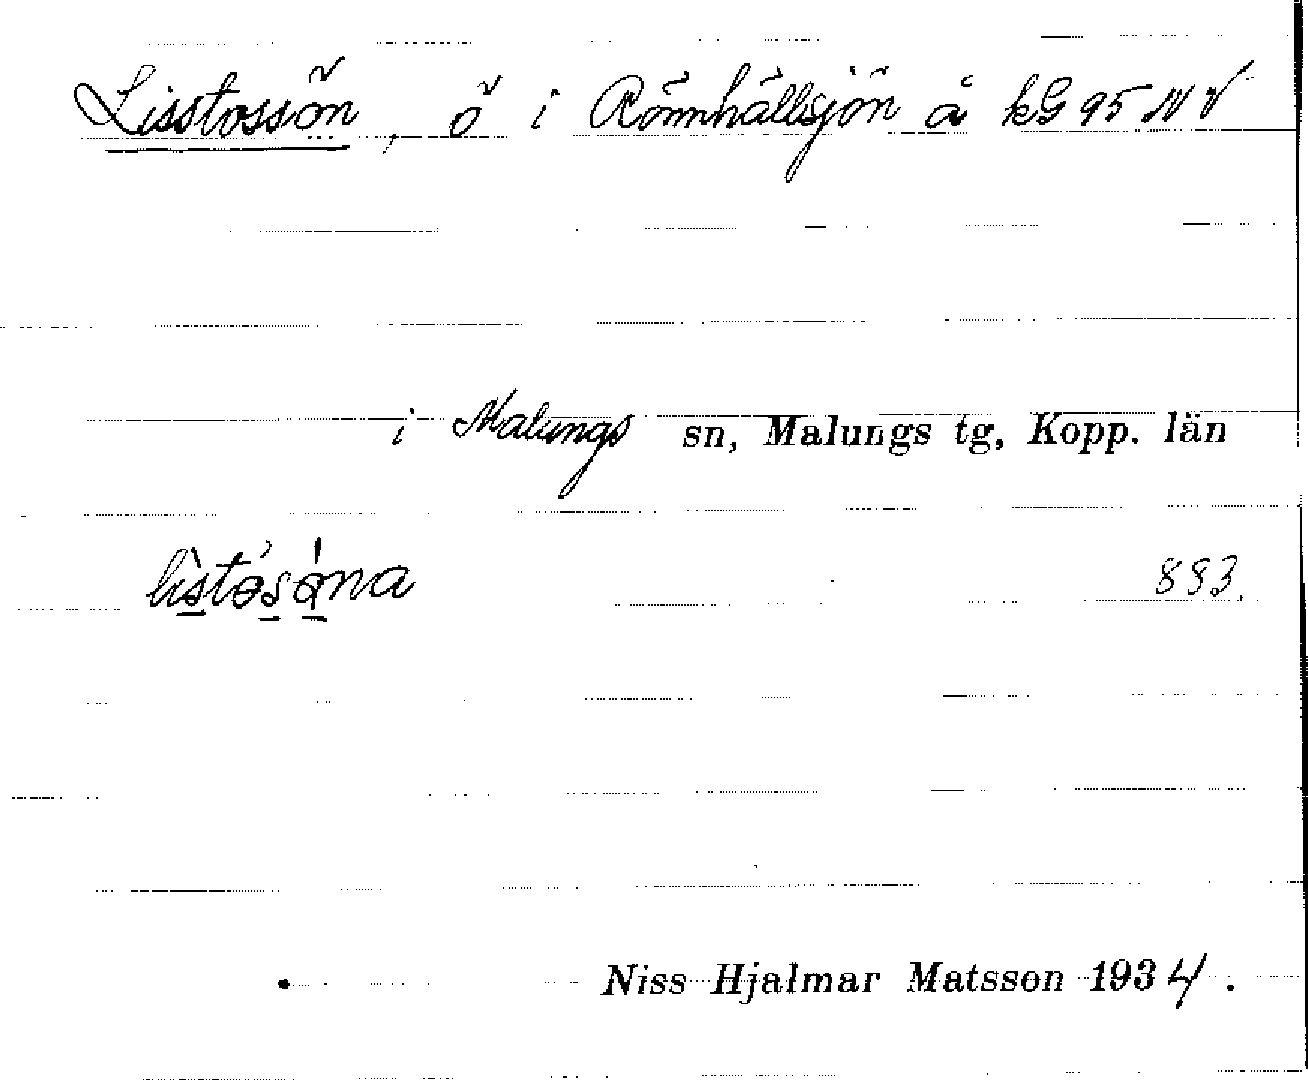 Lisstossön, ö i Rönnhällsjön å kG 95 NV
i Malungs sn, Malungs tg, Kopp. län
883.
Niss Hjalmar Matsson 1934.